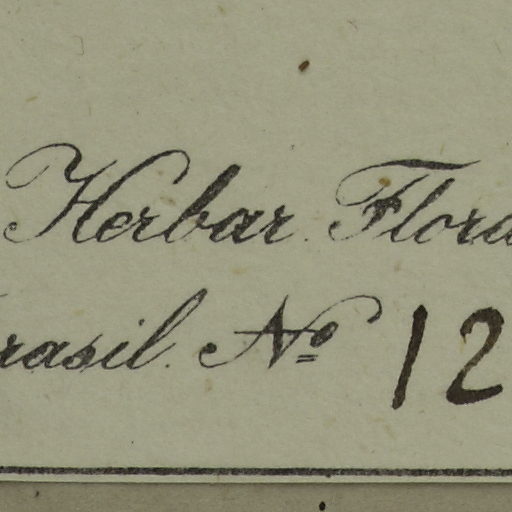 Herbar. Flora
rasil. Nº 12